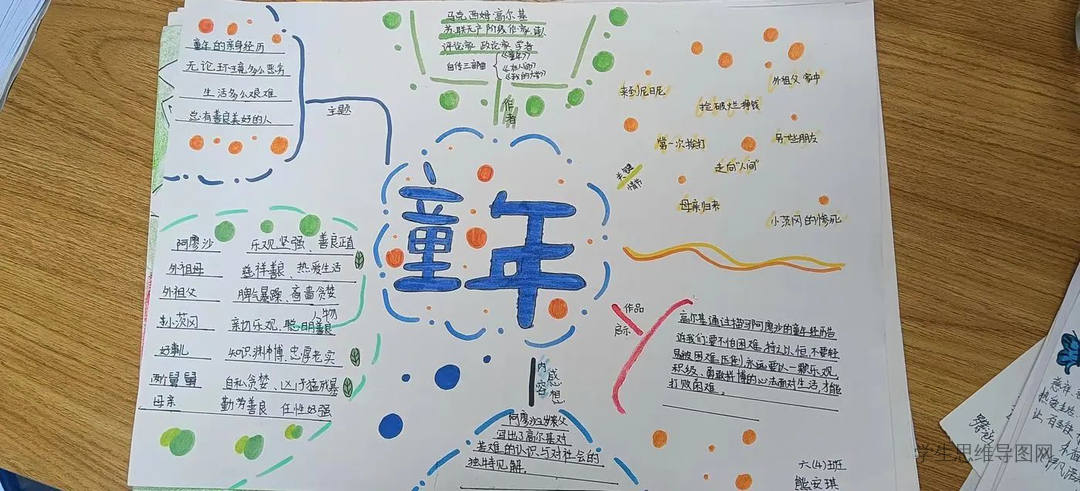 童年的亲身经历
无论环境多么恶劣
生活多么艰难
总有善良美好的人
主题
马克西姆·高尔基
苏联无产阶级作家、诗人
评论家 政论家 学者
自传三部曲
《童年》
《在人间》
《我的大学》
作者
童年
来到尼日尼
捡破烂挣钱
外祖父家中
第一次挨打
另一些朋友
走向"人间"
母亲归来
小茨冈的惨死
关键
情节
阿廖沙 乐观坚强、善良正直
外祖母 慈祥善良、热爱生活
外祖父 脾气暴躁、吝啬贪婪
人物
小茨冈 亲切乐观、聪明善良
好事儿 知识渊博、忠厚老实
两个舅舅 自私贪婪、凶狠残暴
母亲 勤劳善良 任性好强
作品
启示
高尔基通过描写阿廖沙的童年经历告
诉我们:要不怕困难,持之以恒,不要轻
易被困难压倒,永远要以一颗乐观
积极、勇敢拼搏的心去面对生活,才能
打败困难。
内容
感想
阿廖沙3岁丧父
写出了高尔基对
苦难的认识与对社会的
独特见解。
六(4)班
熊安琪
学生思维导图网